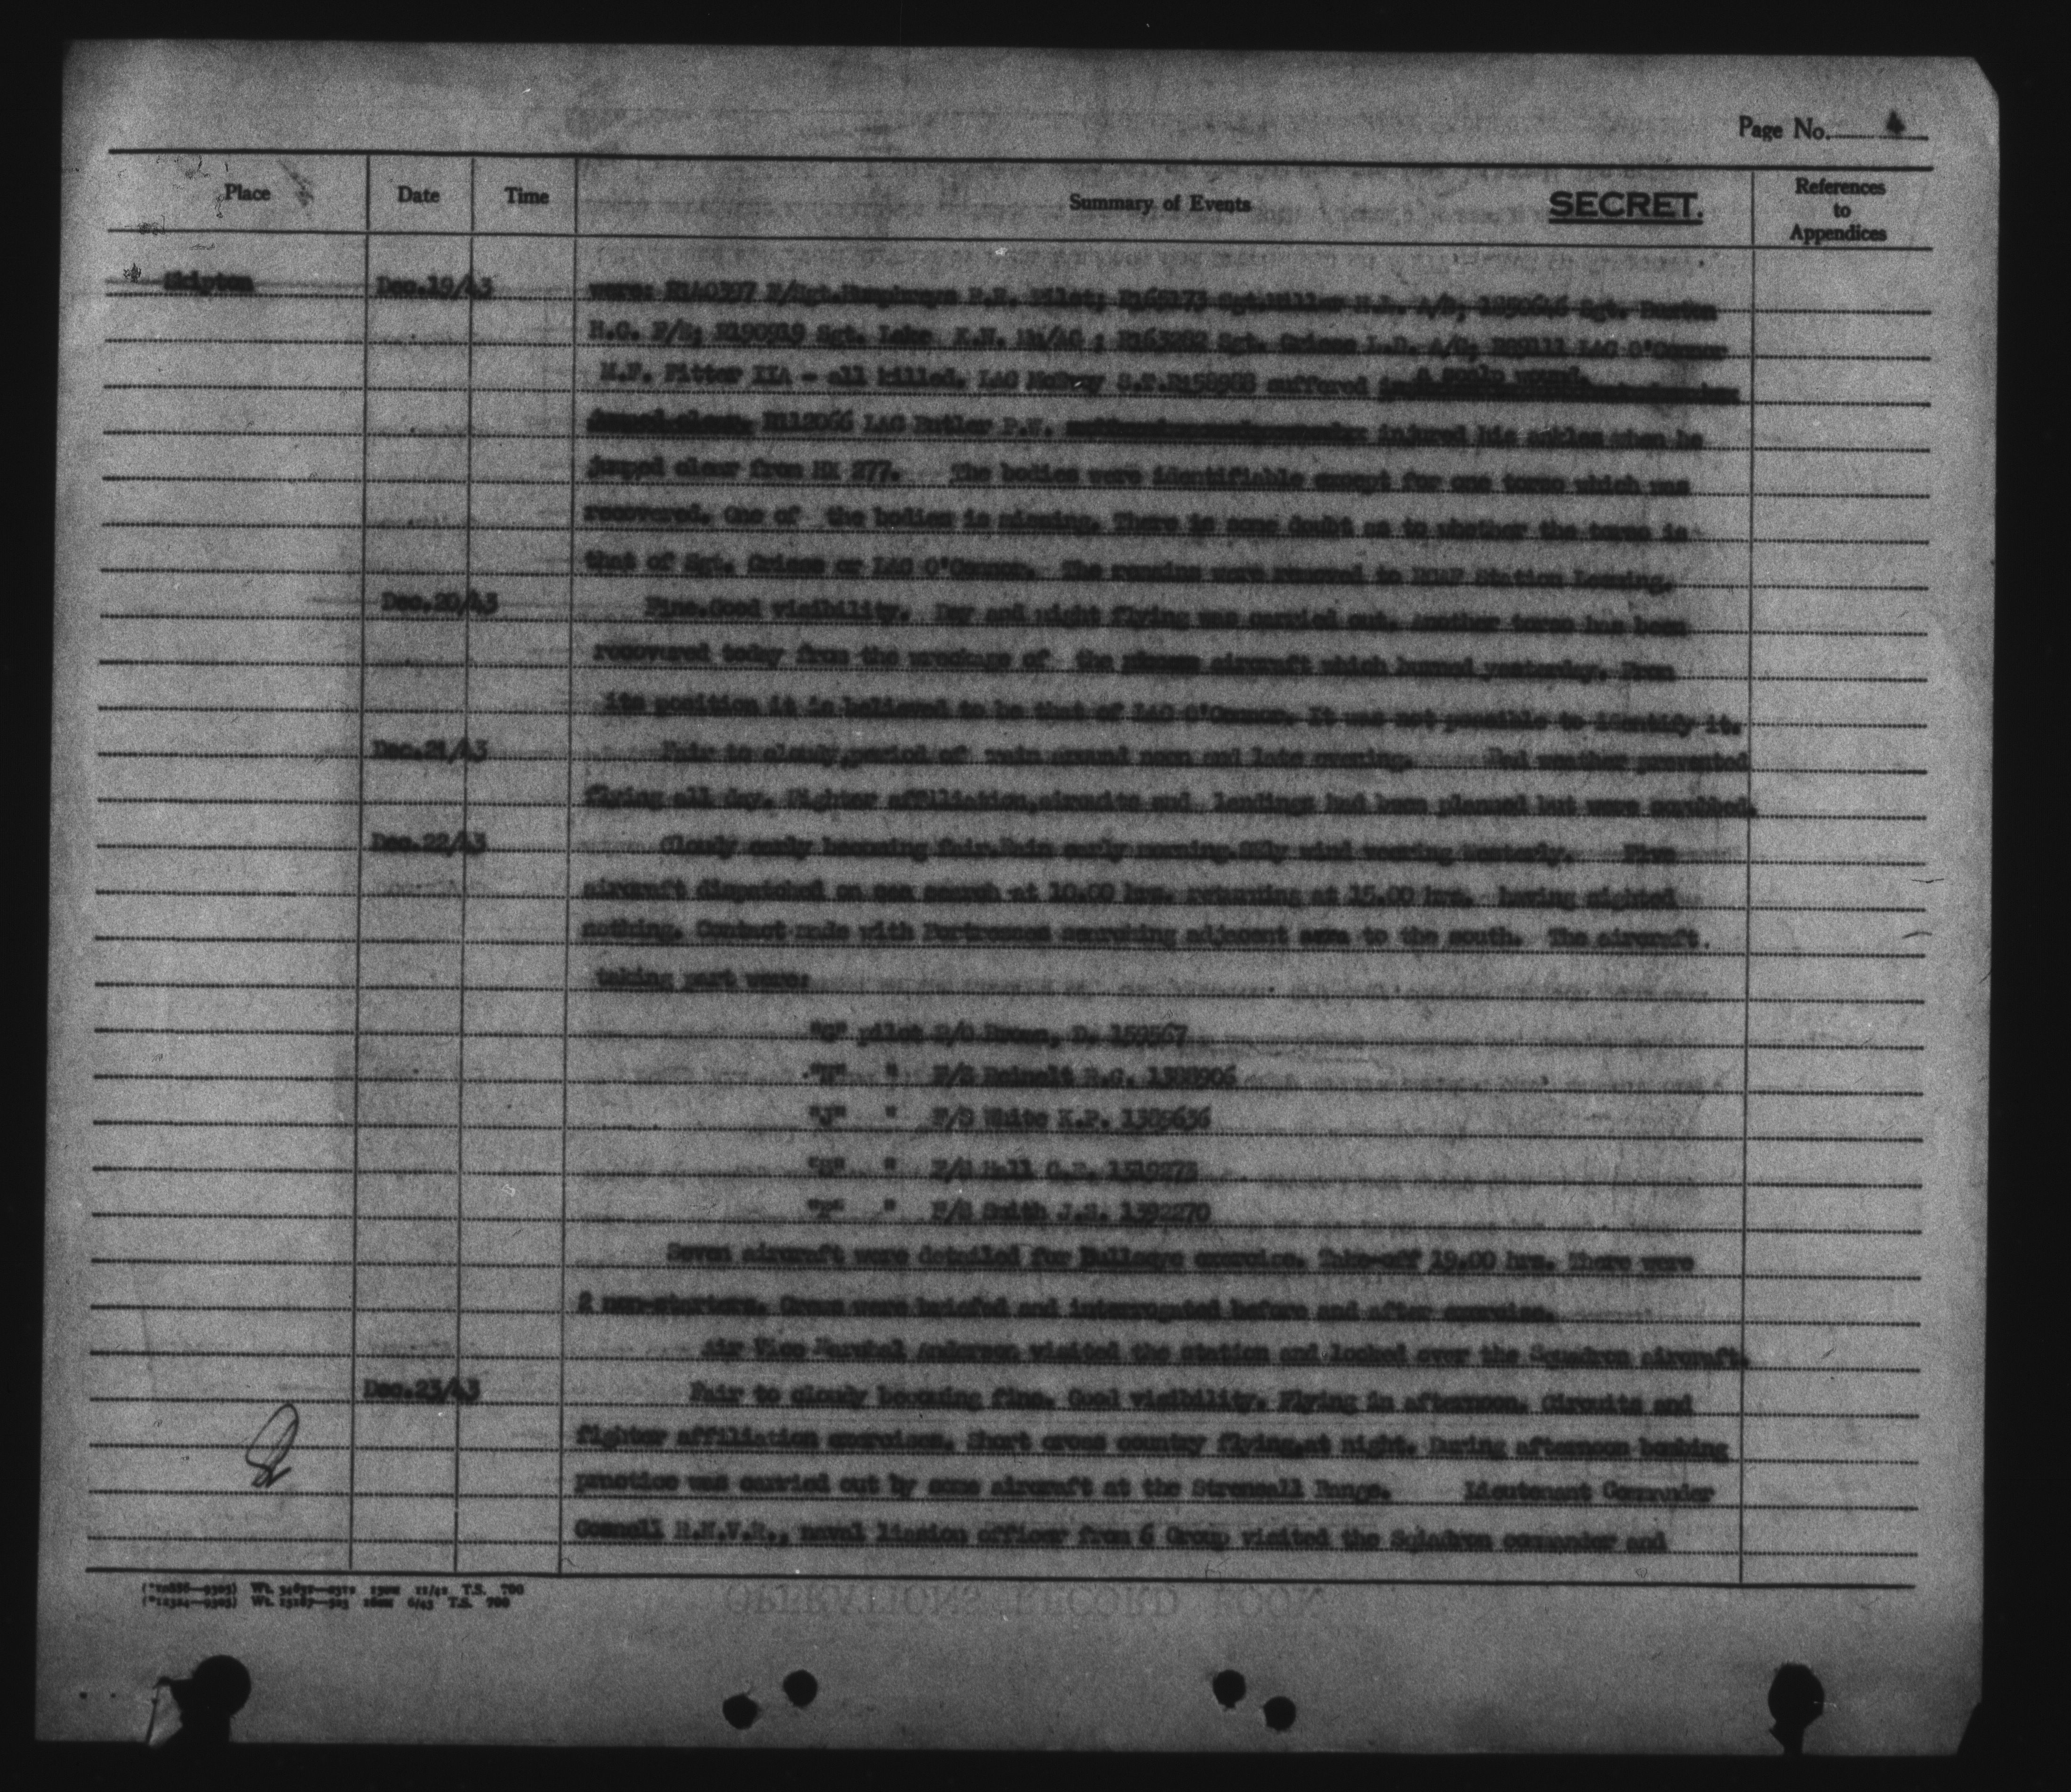 Page No. 4
Place Date Time Summary of Events SECRET. References
to
Appendices
Skipton Dec.19/43 were: R140397 F/Sgt.Humphreys P.E. Pilot; R165173 Sgt.Miller H.R. A/B, 1850646 Sgt.
H.G. F/E; R190919 Sgt. Lehr K.N. AG ; R163282 Sgt. Grisse L.D. A/G, LAC O'Connor
M.F. Fitter IIA - all killed. LAC McEvoy S.T.R158988 suffered a scalp wound.
R112066 LAC Butler P.W. injured his ankles when he
jumped clear from HX 277. The bodies were identifiable except for one torso which was
recovered. One of the bodies is missing. There is some doubt as to whether the torso is
that of Sgt. Grisse or LAC O'Connor. The remains were removed to RCAF Station Leeming.
Dec.20/43 Fine.Good visibility. Day and night flying was carried out. Another torso has been
recovered today from the wreckage of the aircraft which burned yesterday. From
its position it is believed to be that of LAC O'Connor. It was not possible to identify it.
Dec.21/43 Fair to cloudy,period of rain around noon and late evening. Bad weather prevented
flying all day. Fighter affiliation,circuits and landings had been planned but were scrubbed.
Dec.22/43 Cloudy early becoming fair.Rain early morning. wind veering Westerly. Five
aircraft dispatched on sea search at 10.00 hrs. returning at 15.00 hrs. having sighted
nothing. Contact made with Fortresses searching adjacent area to the south. The aircraft
taking part were:
"G" pilot P/O Brown, D. 159567
" F/S Reinelt R.G. 1388906
"J" " F/O White K.P. 1389636
" F/S Hall G.E. 1519273
" F/S Smith J.S. 1392270
Seven aircraft were detailed for Bullseye exercise. Take-off 19.00 hrs. There were
2 non-starters. Crews were briefed and interrogated before and after exercise.
Air Vice Marshal Anderson visited the station and looked over the Squadron aircraft.
Dec.23/43 Fair to cloudy becoming fine. Good visibility. Flying in afternoon. Circuits and
fighter affiliation exercises. Short cross country flying,at night. During afternoon bombing
practice was carried out by some aircraft at the Strensall Range. Lieutenant Commander
Gosnell R.N.V.R., naval liasion officer from 6 Group visited the Sqladron commander and